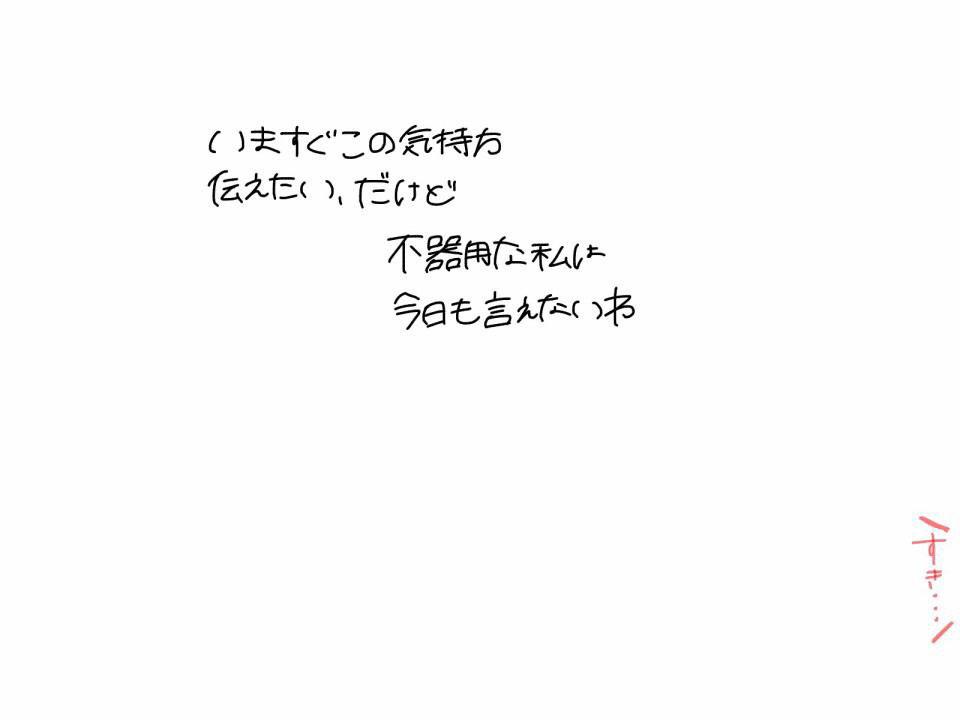 いますぐこの気持ち
伝えたい、だけど
不器用な私は
今日も言えないわ
すき...